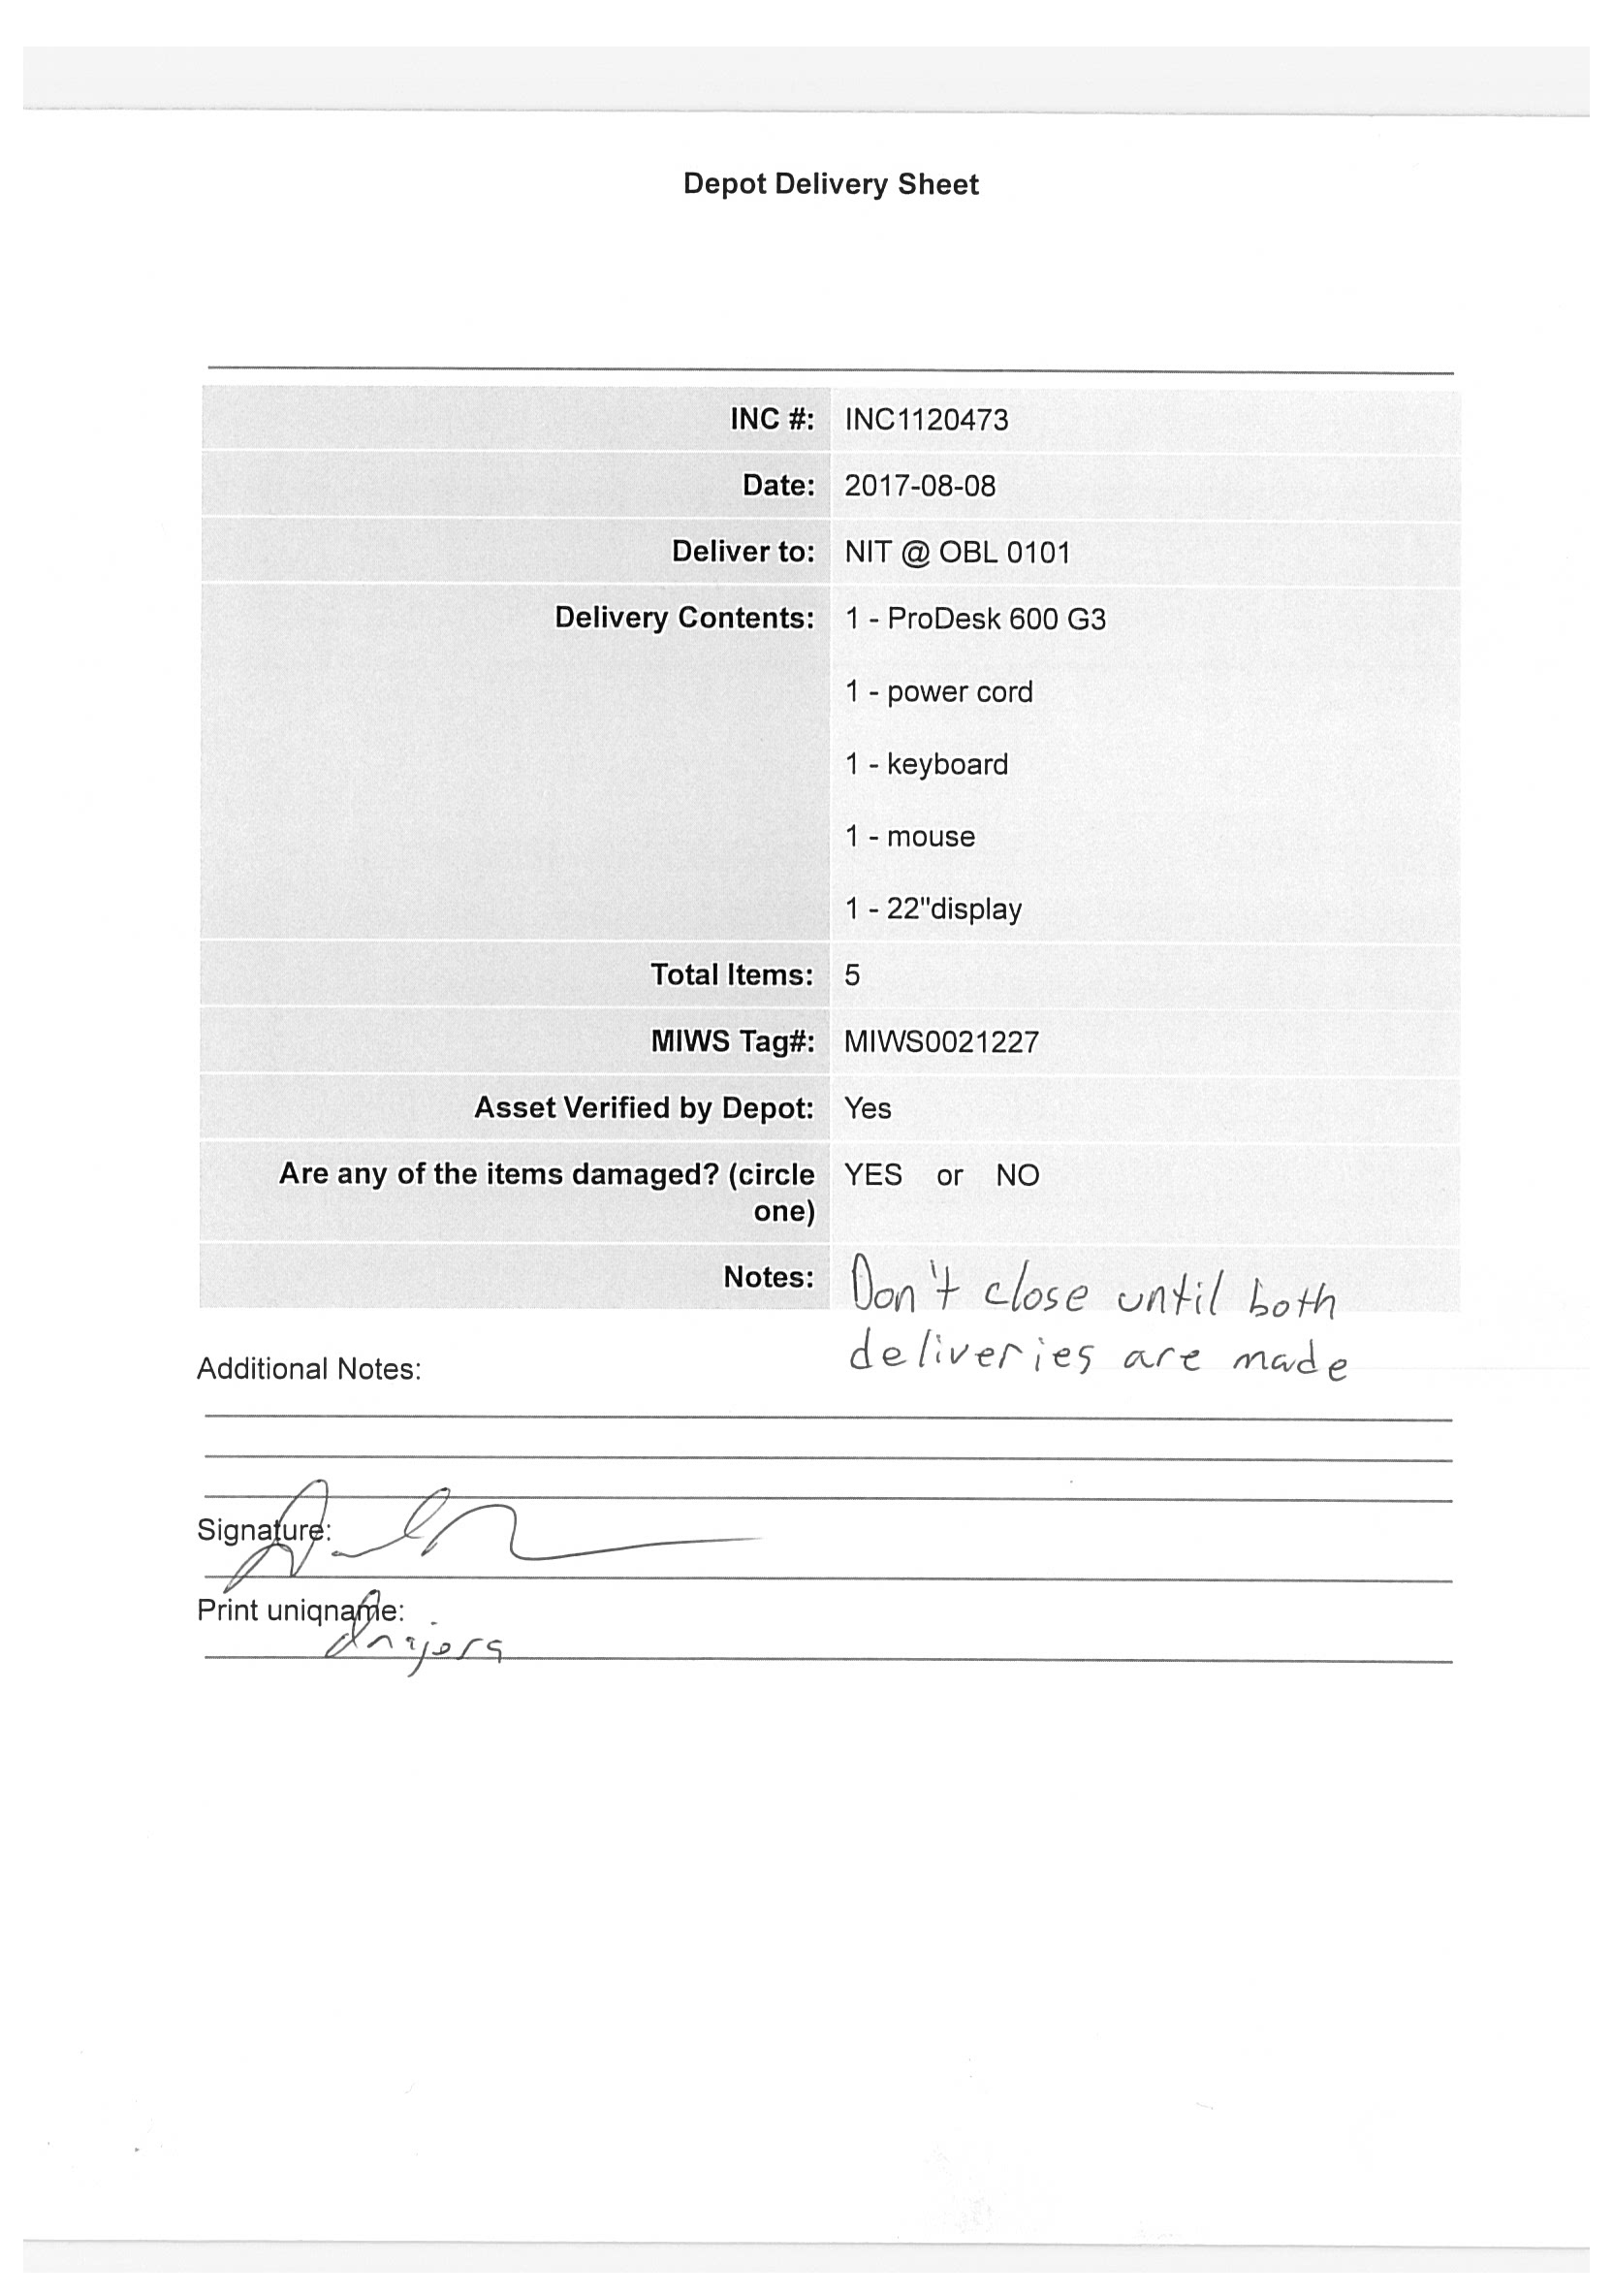 Depot Delivery Sheet
INC #: INC1120473
Date: 2017-08-08
Deliver to: NIT @ OBL 0101
Delivery Contents: 1 - ProDesk 600 G3
1 - power cord
1 - keyboard
1 - mouse
1 - 22"display
Total Items: 5
MIWS Tag#: MIWS0021227
Asset Verified by Depot: Yes
Are any of the items damaged? (circle YES or NO
one)
Notes: Don't close until both
deliveries are made
Additional Notes:
Signature:
Print uniqname: